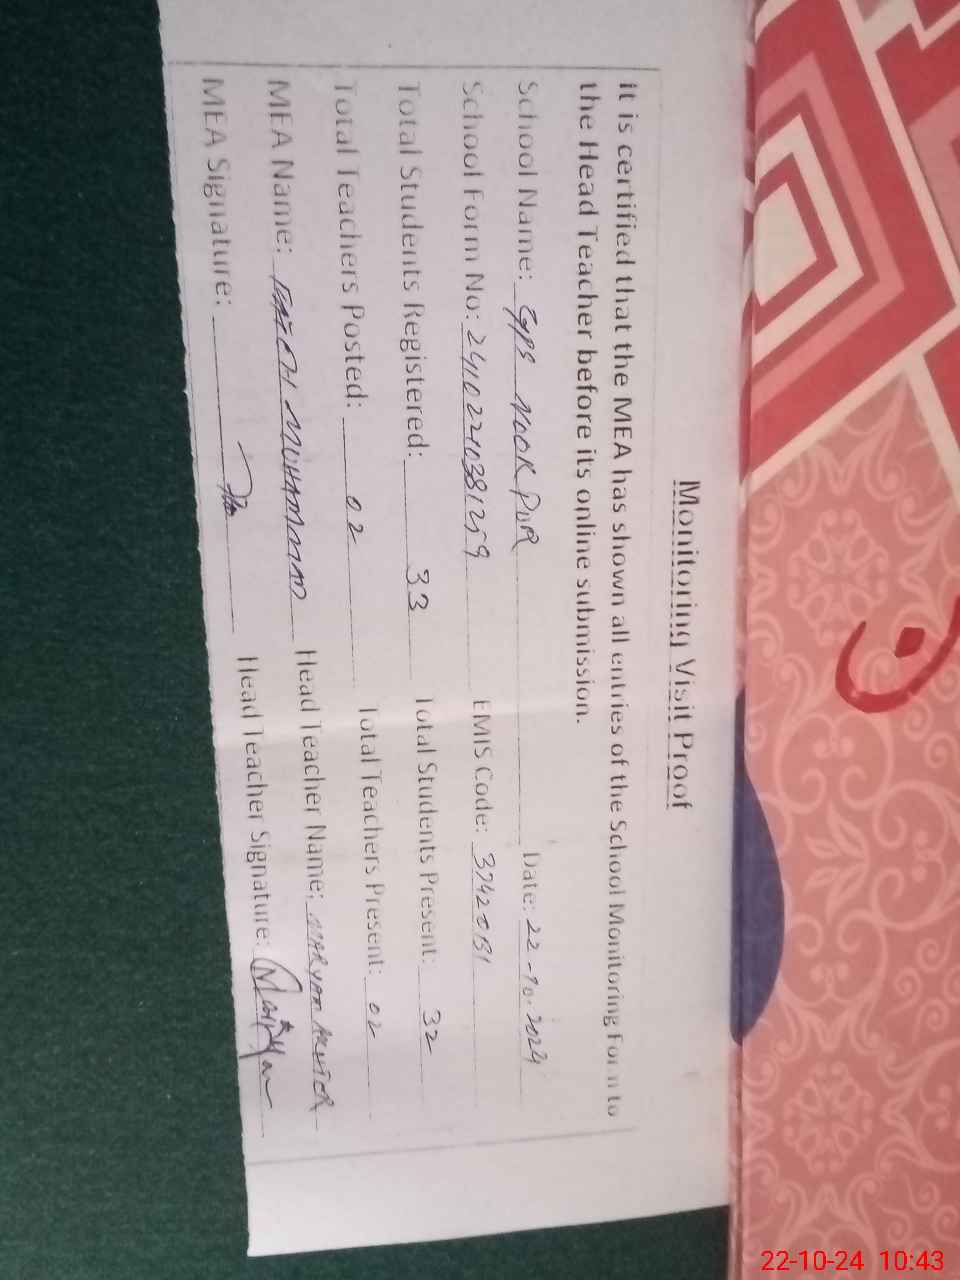 Monitoring Visit Proof
It is certified that the MEA has shown all entries of the School Monitoring Form to
the Head Teacher before its online submission.
School Name: GPS NOOR PUR Date: 22-10-2024
School Form No: 241102240381259 EMIS Code: 37420131
Total Students Registered: 33 Total Students Present: 32
Total Teachers Posted: 02 Total Teachers Present: 02
MEA Name: FATEH MUHAMMAD Head Teacher Name: MARYAM AKHTER
MEA Signature: Head Teacher Signature: Maryam
22-10-24 10:43